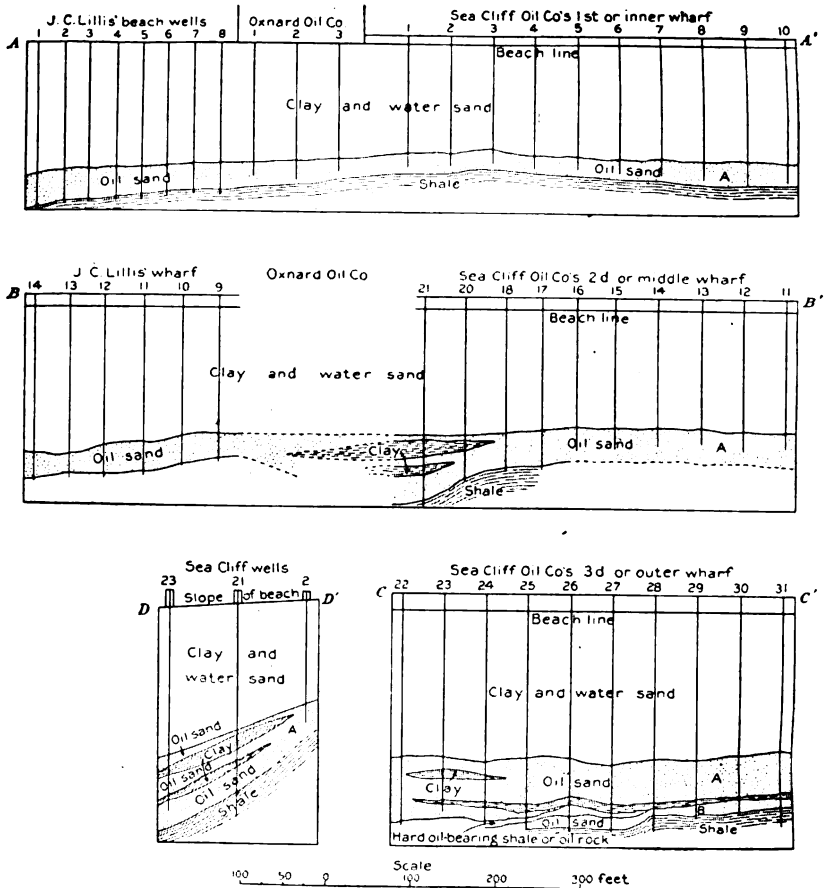 J. C. Lillis' beach wells Oxnard Oil Co. Sea Cliff Oil Co's 1st or inner wharf
A 1 2 3 4 5 6 7 8 1 2 3 1 2 3 4 5 6 7 8 9 10 A'
Beach line
Clay and water sand
Oil sand Shale Oil sand A
J. C. Lillis' wharf Oxnard Oil Co Sea Cliff Oil Co's 2d or middle wharf
B 14 13 12 11 10 9 21 20 18 17 16 15 14 13 12 11 B'
Beach line
Clay and water sand
Oil sand Clay Oil sand A
Shale
Sea Cliff wells
23 21 2
D Slope of beach D'
Clay and
water sand
Oil sand
Clay A
Oil sand
Oil sand
Shale
Sea Cliff Oil Co's 3d or outer wharf
C 22 23 24 25 26 27 28 29 30 31 C'
Beach line
Clay and water sand
Clay Oil sand A
B
Oil sand Shale
Hard oil-bearing shale or oil rock
Scale
100 50 0 100 200 300 feet